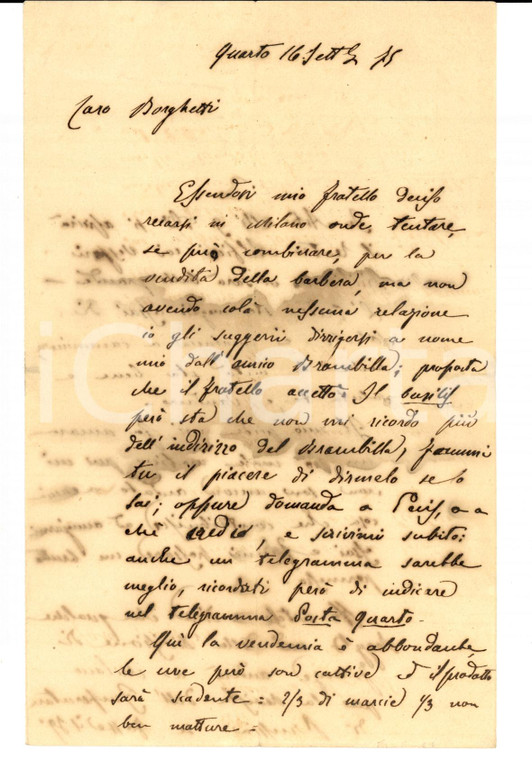 Quarto 16 Sett. 75
Caro Borghetti
Essendosi mio fratello deciso
recarsi in Milano onde tentare,
se può combinare, per la
vendita della barbera, ma non
avendo colà nessuna relazione
io gli suggerii dirigersi a nome
mio dall'amico Brambilla; proposta
che il fratello accettò. Il busilis
però sta che non mi ricordo più
dell'indirizzo del Brambilla, fammi
tu il piacere di dirmelo se lo
sai; oppure domanda a o a
chi credi, e scrivimi subito:
anche un telegramma sarebbe
meglio, ricordati però di indicare
nel telegramma Posta Quarto.
Quì la vendemia è abbondante,
le uve però son cattive ed il prodotto
sarà scadente: 2/3 di marcie 1/3 non
ben matture.
iCharta